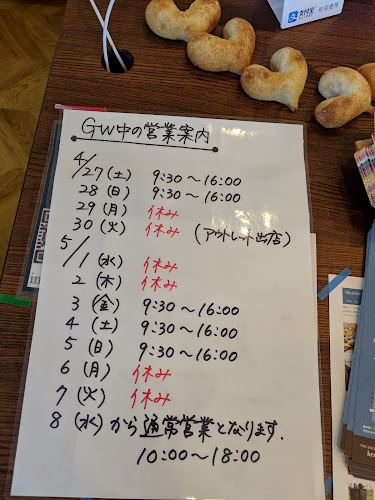 支付宝
GW中の営業案内
4/
27(土) 9:30～16:00
28(日) 9:30～16:00
29(月) 休み
30(火) 休み (アウトレット出店)
5/
1(水) 休み
2(木) 休み
3(金) 9:30～16:00
4(土) 9:30～16:00
5(日) 9:30～16:00
6(月) 休み
7(火) 休み
8(水)から通常営業となります.
10:00～18:00